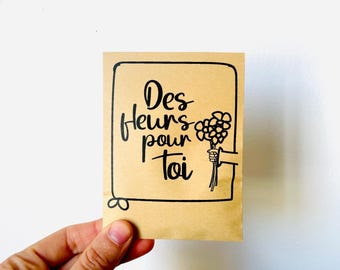 Des
fleurs
pour
toi